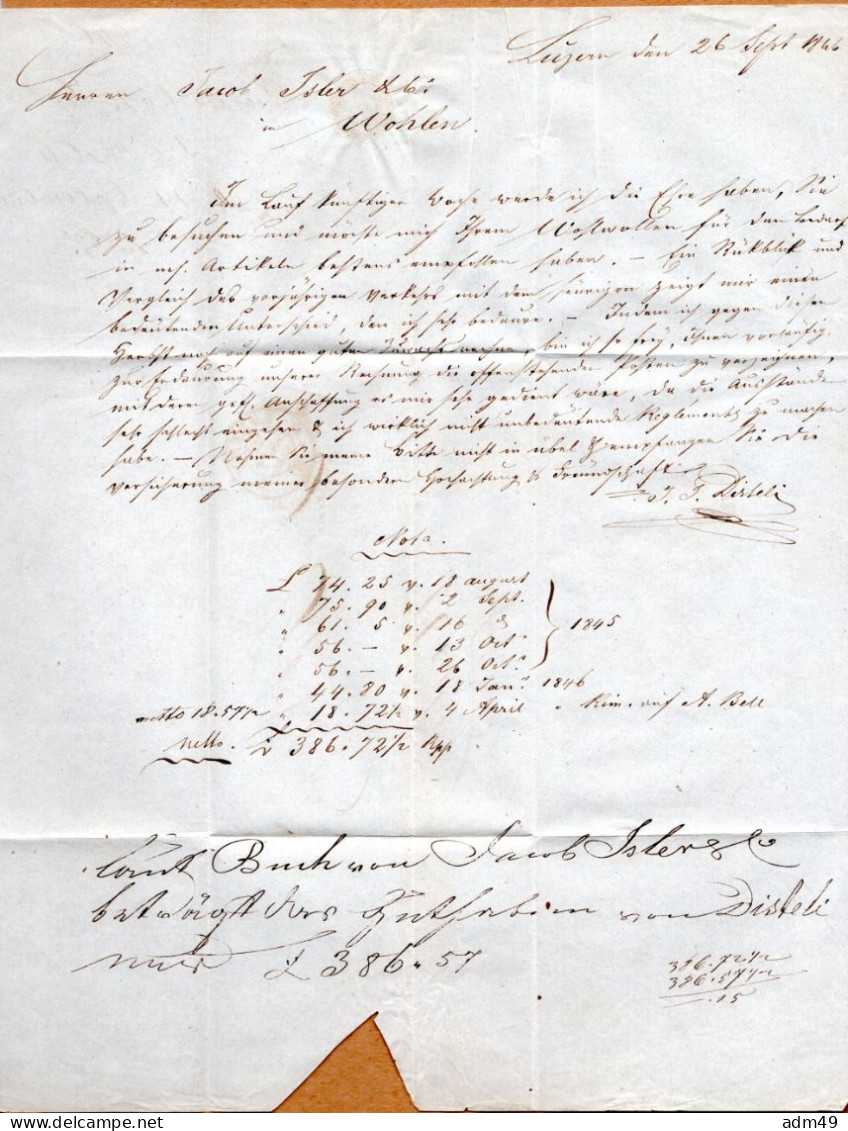 Luzern den 26 Sept 1846
Herren Jacob Isler & Co:
in Wohlen.
Im Lauf künftiger Woche werde ich die Ehre haben, Sie
zu besuchen und möchte mich Ihrem Wohlwollen für den Bedarf
in m/. Artikeln bestens empfohlen haben. – Ein Rükblik und
Vergleich des vorjährigen Verkehrs mit dem heurigen zeigt mir einen
bedeutenden Unterschied, den ich sehr bedaure. – Indem ich gegen diesen
Herbst noch auf einen guten Zuwachs rechne, bin ich so frey, Ihnen vorläufig
zur unserer Rechnung die offenstehenden Posten zu verzeichnen,
mit deren gefl. Anschaffung es mir sehr gedient wäre, da die Ausstände
sehr schlecht eingehen & ich wirklich nicht unbedeutende Reglements zu machen
habe. – Nehmen Sie meine Bitte nicht in übel & empfangen Sie die
Versicherung meiner besondern Hochachtung & Freundschaft
Disteli
Nota.
£ 74. 25 v. 18 august
" 75. 90 v. 2 Sept.
" 61. 5 v. 16 d 1845
" 56. – v. 13 Oct.
" 56. – v. 26 Oct.
" 44. 80 v. 18 Jan. 1846
netto 18.57½ " 18. 72½ v. 4 April " Rim. auf A. Bell
Netto. £ 386. 72½ Rpp
laut Buch von Jacob Isler & Co
beträgt das Guthaben von Disteli
nur £ 386. 57
386.72½
386.57½
.15
adm49